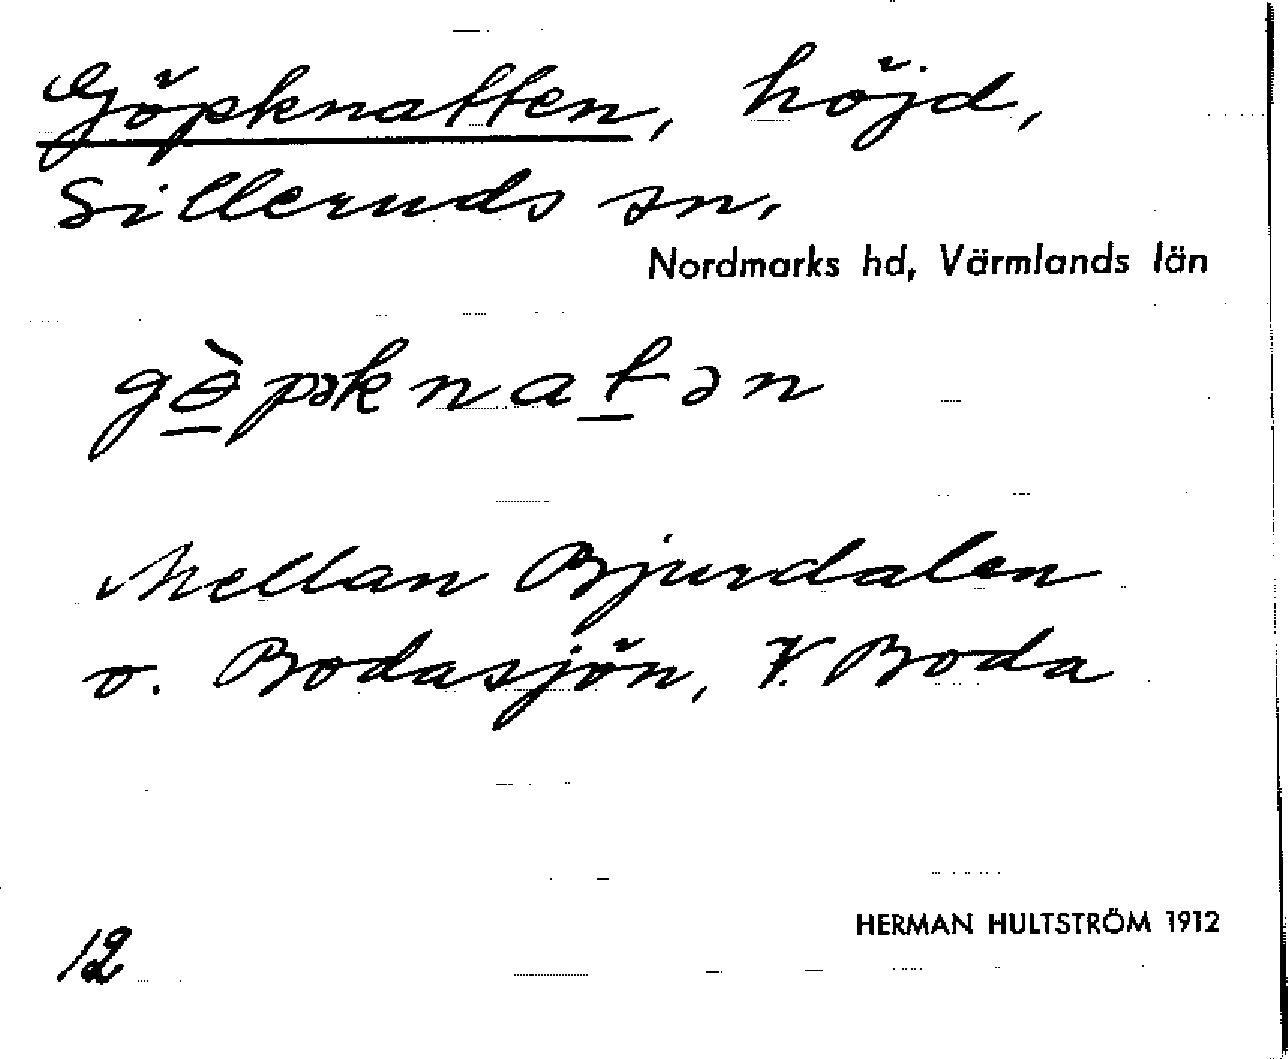 Göpknatten, höjd,
Silleruds sn,
Nordmarks hd, Värmlands län
gɵ̱̀pəknaṯən
Mellan Bjurdalen
o. Bodasjön, V. Boda
HERMAN HULTSTRÖM 1912
12